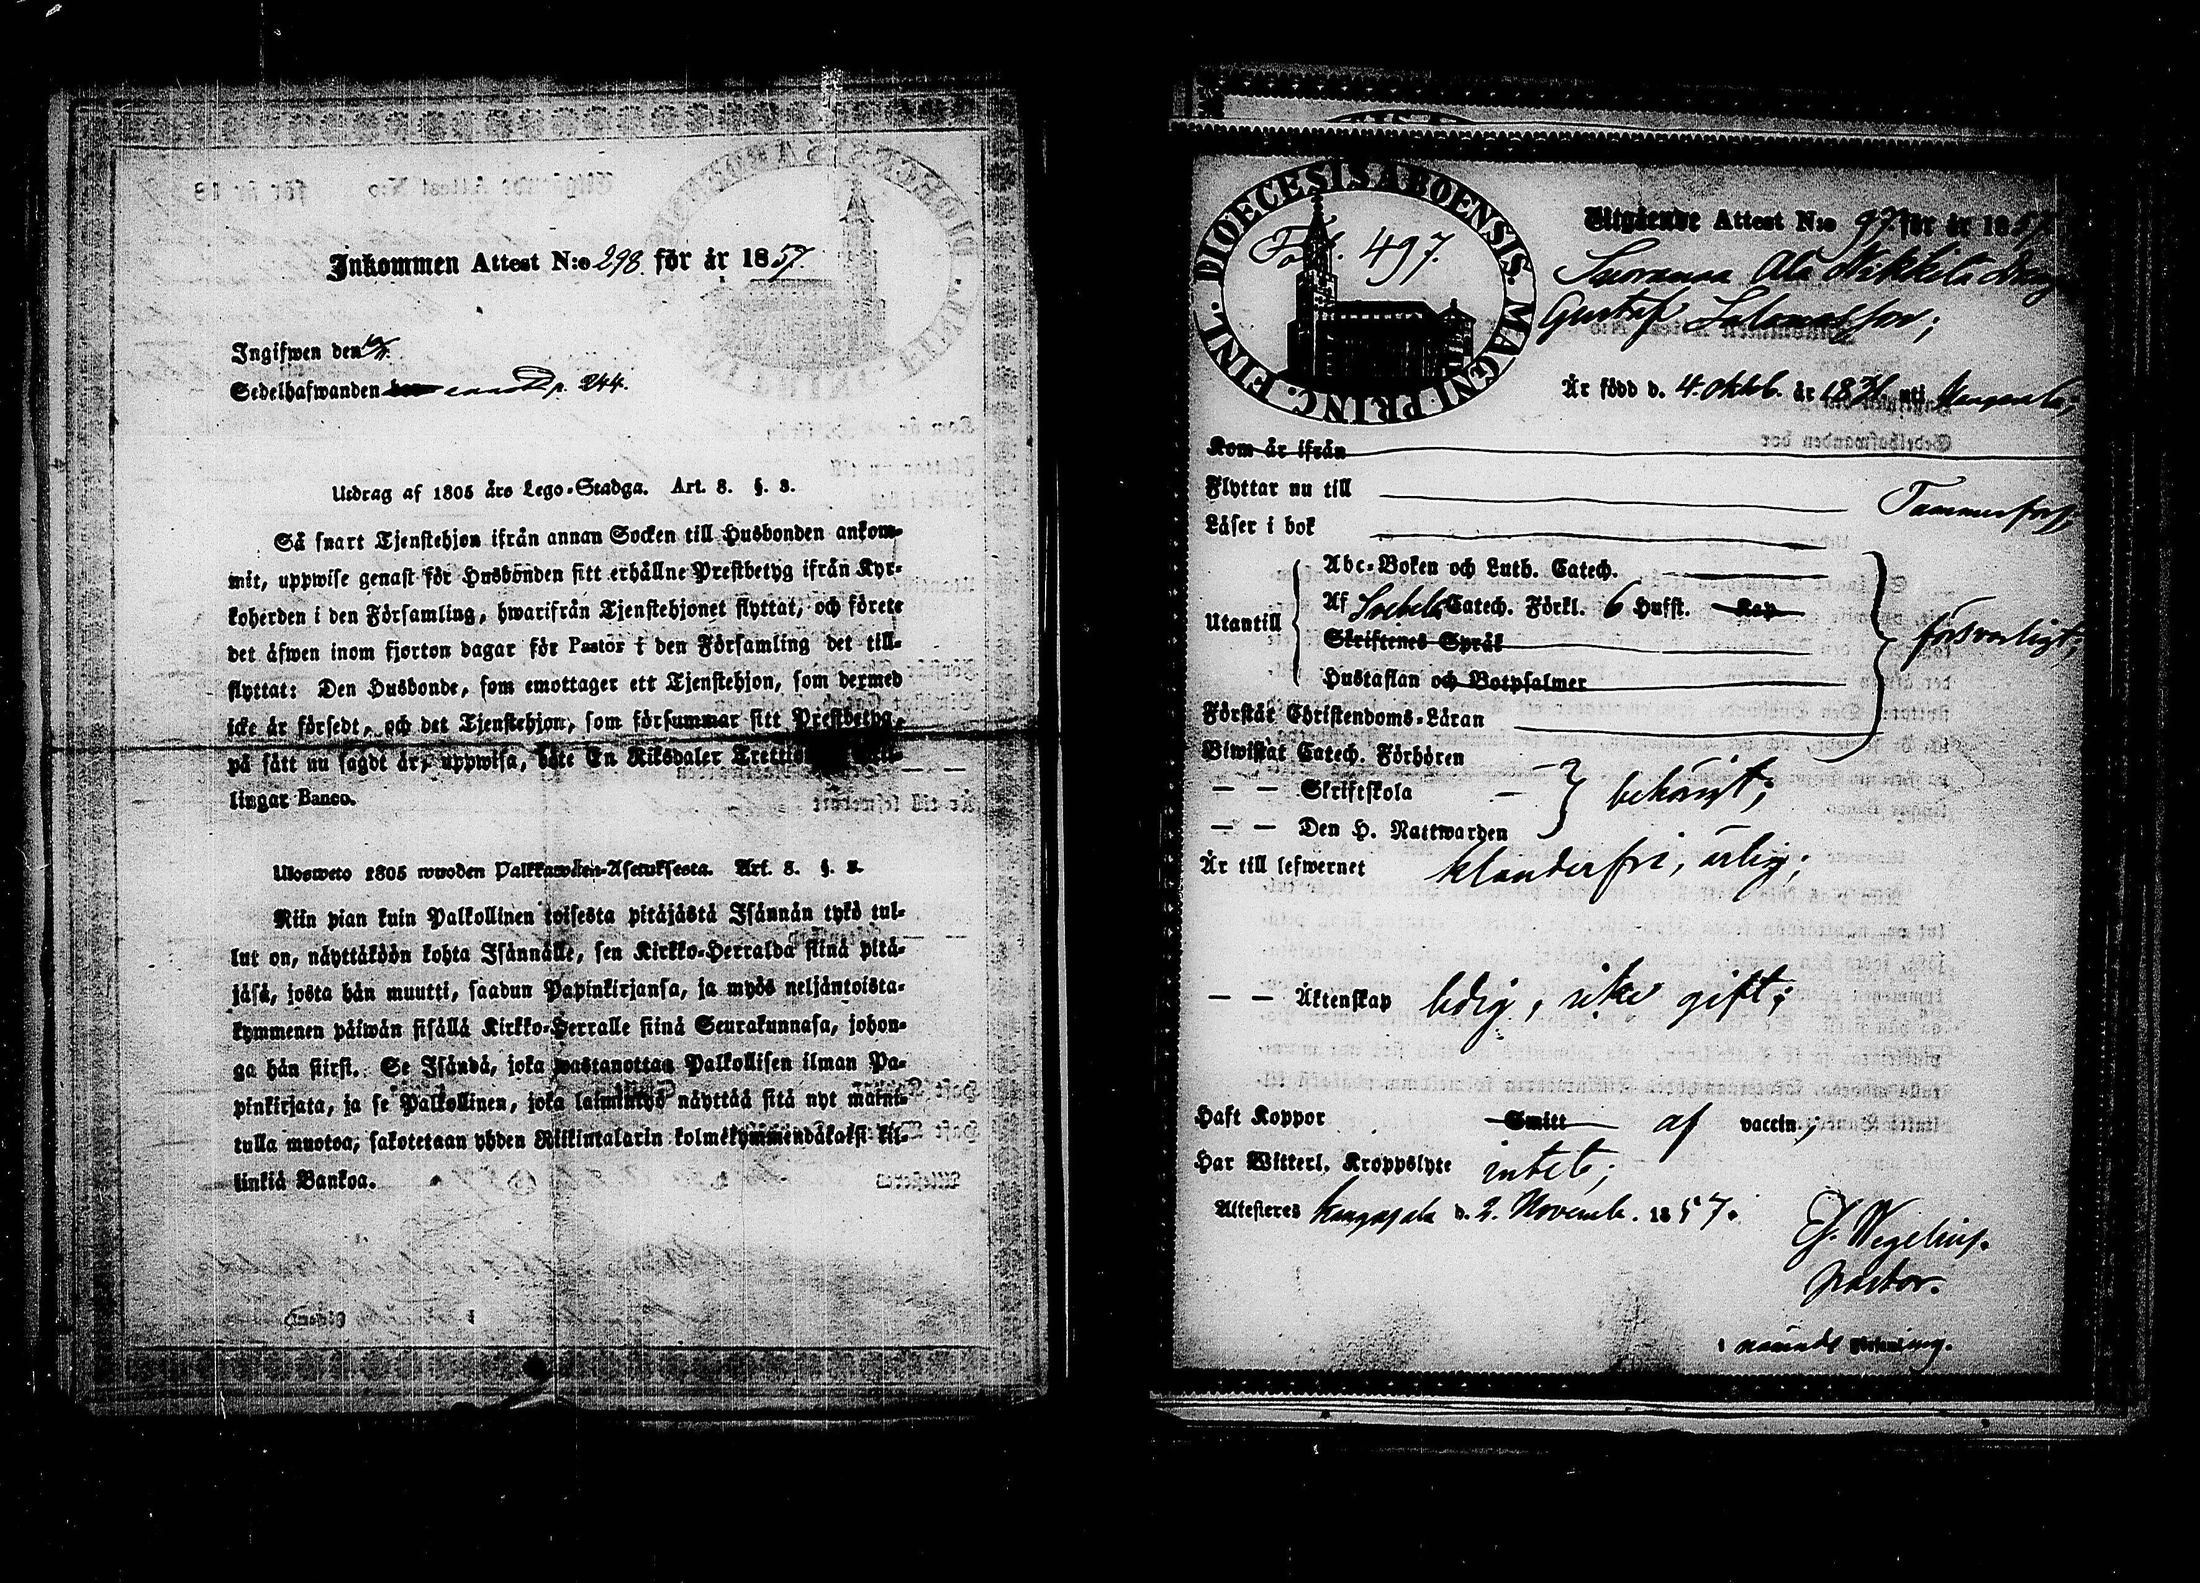 Inkommen Attest N:o 298. för år 1857.
Ingifwen den
Sedelhafwanden p. 244.
Utdrag af 1805 års Lego-Stadga. Art. 8. §. 3.
Så snart Tjenstehjon ifrån annan Socken till Husbonden ankom-
mit, uppwise genast för Husbonden sitt erhållne Prestbetyg ifrån Kyr-
koherden i den Församling, hwarifrån Tjenstehjonet flyttat, och förete
det äfwen inom fjorton dagar för Pastor i den Församling det till-
flyttat: Den Husbonde, som emottager ett Tjenstehjon, som dermed
icke är försedt, och det Tjenstehjon, som försummar sitt Prestbetyg,
på sätt nu sagdt är, uppwisa, böte En Riksdaler
lingar Banco.
Ulosweto 1805 wuoden Palkkawäen-Asetuksesta. Art. 8. §. 3.
Niin pian kuin Palkollinen toisesta pitäjästä Isännän tykö tul-
lut on, näyttäköön kohta Isännälle, sen Kirkko-Herralda siinä pitä-
jäsä, josta hän muutti, saadun Papinkirjansa, ja myös neljäntoista-
kymmenen päiwän sisällä Kirkko-Herralle siinä Seurakunnasa, johon-
ga hän siirsi. Se Isändä, joka wastanottaa Palkollisen ilman Pa-
pinkirjata, ja se Palkollinen, joka laiminlyö näyttää sitä nyt maini-
tulla muotoa, sakotetaan yhden Riikintalarin kolmekymmendäkaksi kil-
linkiä Bankoa.
DIOECESIS ABOENSIS. MAGNI PRINC. FINL.
Fol. 497.
Utgående Attest N:o 97 för år 1857.
Suorama Ala Nikkilä dräng
Gustaf Salomonsson;
Är född d. 4. oktob. år 1831. uti Kangasala;
Kom år ifrån
Flyttar nu till Tammerfors;
Läser i bok
Utantill
Abc-Boken och Luth. Catech.
Af Svebelii Catech. Förkl. 6 Hufst. Kap
Skriftenes Språk
Hustaflan och Botpsalmer
försvarligt;
Förstår Christendoms-Läran
Biwistat Catech. Förhören
— — Skriftskola
— — Den H. Nattwarden
behörigt;
Är till lefwernet klanderfri, ärlig;
— — Äktenskap ledig, icke gift;
Haft Koppor Smitt af vaccin;
Har Witterl. Kroppslyte intet;
Attesteres Kangasala d. 2. Novemb. 1857.
Wegelius.
pastor.
i nämnde Församling.